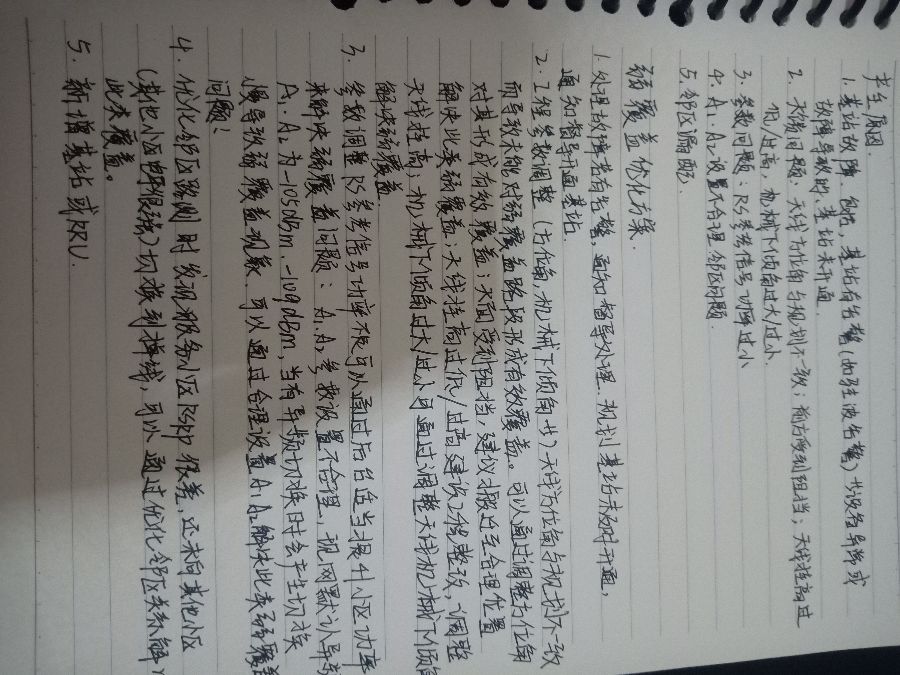 产生原因.
1. 基站故障 包括, 基站有告警(如驻波告警)书设备异常或
故障导致的、基站未开通.
2. 天馈问题: 天线方位角与规划不一致; 前方受到阻挡; 天线挂高过
低/过高, 机械下倾角过大/过小
3. 参数问题: RS参考信号功率过小
4. A1, A2设置不合理邻区问题.
5. 邻区漏配.
弱覆盖优化方案.
1. 处理故障若有告警, 通知督导处理. 规划基站未及时开通,
通知督导开通基站.
2. 工程参数调整 (方位角, 机械下倾角 书) 天线方位角与规划不一致
而导致未能对弱覆盖路段形成有效覆盖。可以通过调整方位角
对其形成有效覆盖; 天面受到阻挡, 建议搬迁至合理位置
解决此类弱覆盖; 天线挂高过低/过高建议工程整改, 调整
天线挂高; 机械下倾角过大/过小可通过调整天线机械下倾角
解决弱覆盖
3. 参数调整 RS参考信号功率不足可以通过后台适当提升小区功率
来解决弱覆盖问题: A1, A2参数设置不合理, 现网默认异频
A1, A2为 -105dBm, -109dBm, 当有异频切换时会产生切换
慢导致弱覆盖现象. 可以通过合理设置A1, A2解决此类弱覆盖
问题!
4. 优化邻区路测时发现服务小区rsrp很差, 还未向其他小区
(其他小区电平很强)切换到掉线, 可以通过优化邻区关系解
此类覆盖。
5. 新增基站或RRU.